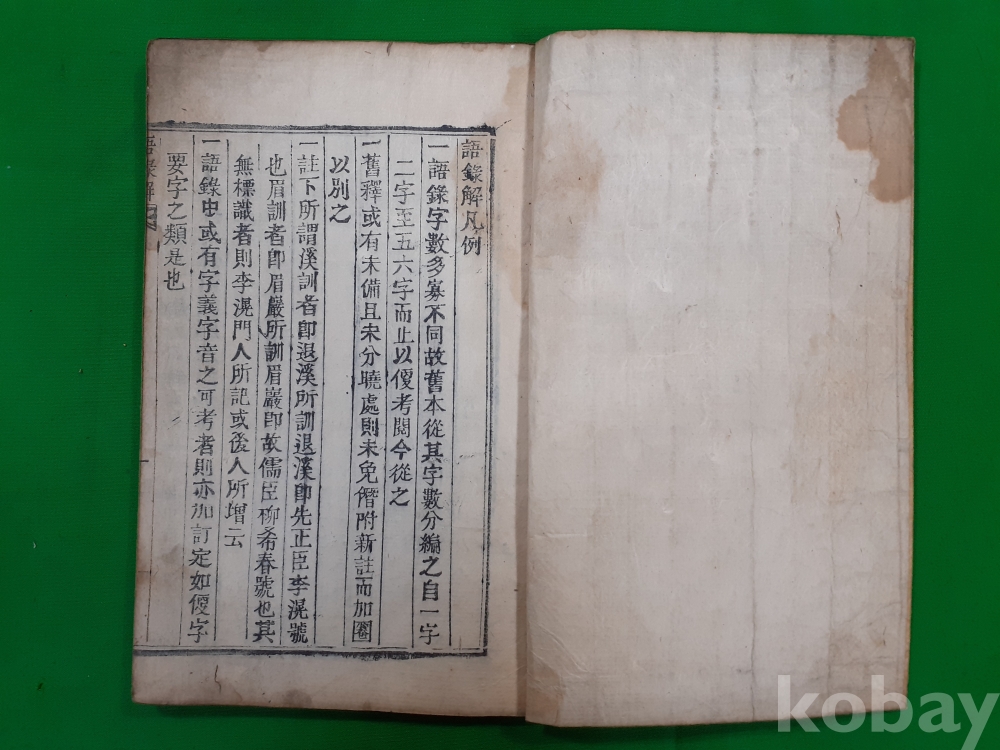 語錄解凡例
一語錄字數多寡不同故舊本從其字數分編之自一字
二字至五六字而止以㑄考閱今從之
一舊釋或有未備且未分曉處則未免僭附新註而加圈
以別之
一註下所謂溪訓者卽退溪所訓退溪卽先正臣李滉號
也眉訓者卽眉巖所訓眉巖卽故儒臣柳希春號也其
無標識者則李滉門人所記或後人所增云
一語錄中或有字義字音之可考者則亦加訂定如㑄字
要字之類是也
語錄解
kobay